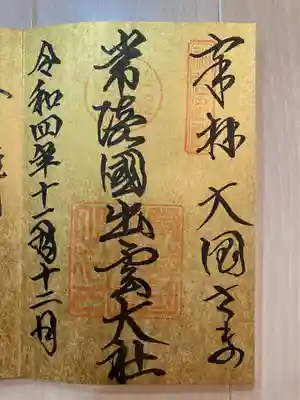 大国さま
常陸國出雲大社
令和四年十一月十二日